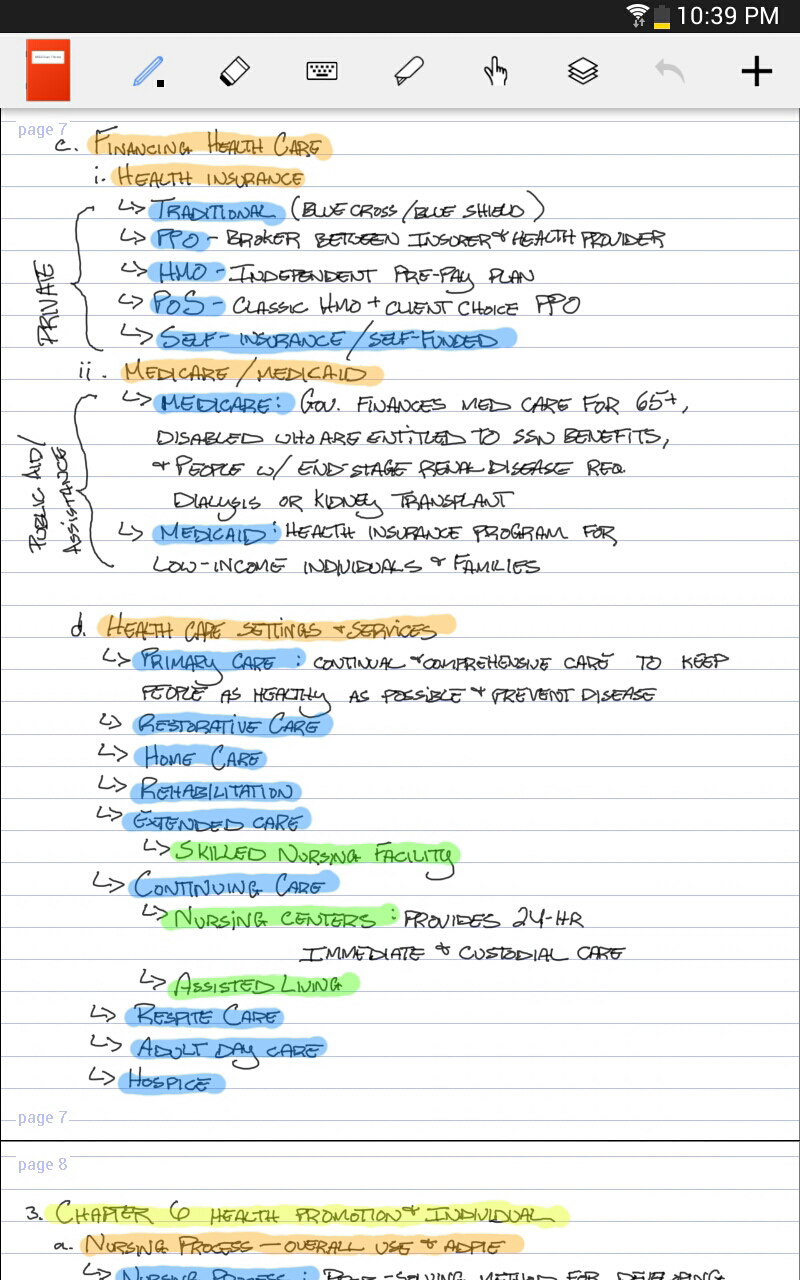 10:39 PM
page 7
c. FINANCING HEALTH CARE
i. HEALTH INSURANCE
PRIVATE
↳ TRADITIONAL (BLUE CROSS/BLUE SHIELD)
↳ PPO - BROKER BETWEEN INSURER & HEALTH PROVIDER
↳ HMO - INDEPENDENT PRE-PAY PLAN
↳ POS - CLASSIC HMO + CLIENT CHOICE PPO
↳ SELF-INSURANCE/SELF-FUNDED
ii. MEDICARE/MEDICAID
PUBLIC AID/
ASSISTANCE
↳ MEDICARE: GOV. FINANCES MED CARE FOR 65+,
DISABLED WHO ARE ENTITLED TO SSN BENEFITS,
& PEOPLE W/ END-STAGE RENAL DISEASE REQ.
DIALYSIS OR KIDNEY TRANSPLANT
↳ MEDICAID: HEALTH INSURANCE PROGRAM FOR
LOW-INCOME INDIVIDUALS & FAMILIES
d. HEALTH CARE SETTINGS & SERVICES
↳ PRIMARY CARE: CONTINUAL & COMPREHENSIVE CARE TO KEEP
PEOPLE AS HEALTHY AS POSSIBLE & PREVENT DISEASE
↳ RESTORATIVE CARE
↳ HOME CARE
↳ REHABILITATION
↳ EXTENDED CARE
↳ SKILLED NURSING FACILITY
↳ CONTINUING CARE
↳ NURSING CENTERS: PROVIDES 24-HR
IMMEDIATE & CUSTODIAL CARE
↳ ASSISTED LIVING
↳ RESPITE CARE
↳ ADULT DAY CARE
↳ HOSPICE
page 7
page 8
3. CHAPTER 6 HEALTH PROMOTION & INDIVIDUAL
a. NURSING PROCESS - OVERALL USE & ADPIE
↳ NURSING PROCESS: -SOLVING METHOD FOR DEVELOPING